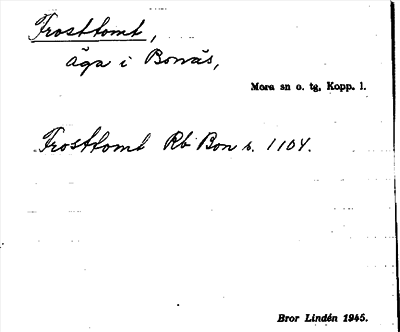 Frosttomt,
äga i Bonäs,
Mora sn o. tg, Kopp. l.
Frosttomt Rb Bon s. 1104.
Bror Lindén 1945.